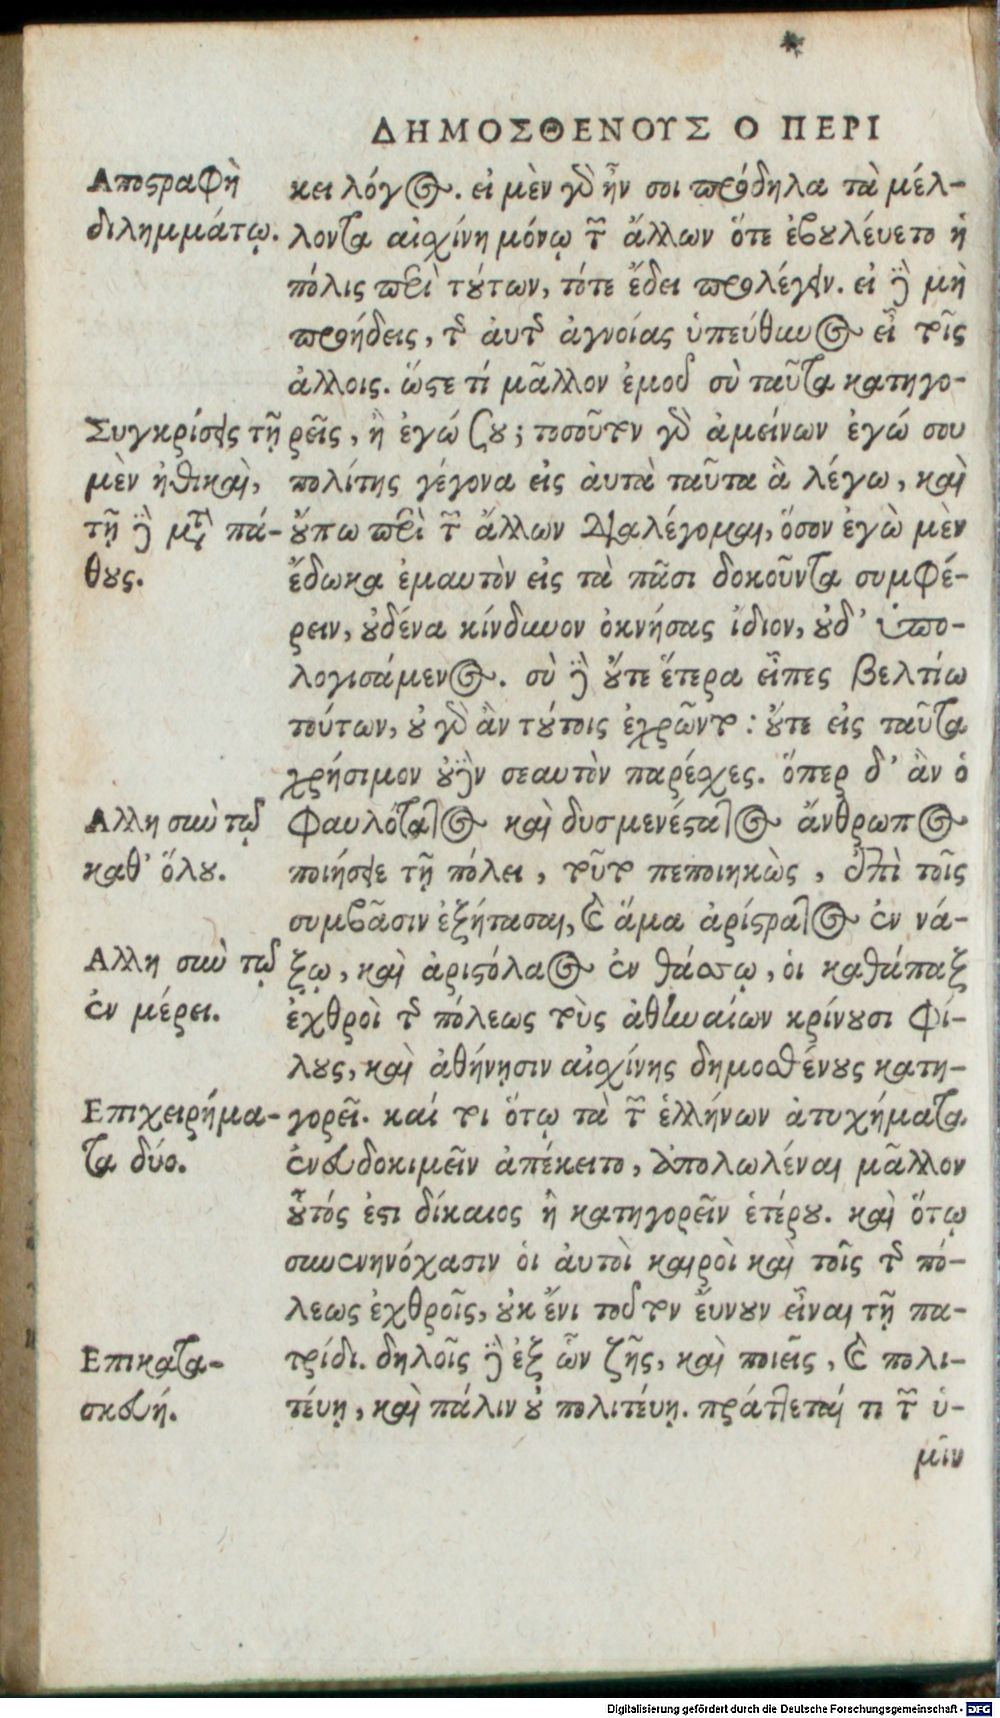 ΔΗΜΟΣΘΕΝΟΥΣ Ο ΠΕΡΙ
Αποστραφὴ
διλημμάτῳ.
κει λόγος. εἰ μὲν γὰρ ἦν σοι πρόδηλα τὰ μέλ-
λοντα αἰσχίνη μόνῳ τῶν ἄλλων ὅτε ἐβουλέυετο ἡ
πόλις περὶ τούτων, τότε ἔδει προλέγειν. εἰ δὲ μὴ
προήδεις, τῆς ἀυτῆς ἀγνοίας ὑπεύθυνος εἶ τοῖς
ἄλλοις. ὥστε τί μᾶλλον ἐμοῦ σὺ ταῦτα κατηγο-
Συγκρίσεις τῇ
μὲν ἠθικαὶ,
τῇ δὲ μετὰ πά-
θους.
ρεῖς, ἢ ἐγώ σου; τοσοῦτον γὰρ ἀμείνων ἐγώ σου
πολίτης γέγονα εἰς ἀυτὰ ταῦτα ἃ λέγω, καὶ
ὄυπω περὶ τῶν ἄλλων διαλέγομαι, ὅσον ἐγὼ μὲν
ἔδωκα ἐμαυτὸν εἰς τὰ πᾶσι δοκοῦντα συμφέ-
ρειν, οὐδένα κίνδυνον ὀκνήσας ἰδιον, οὐδ' ὑπο-
λογισάμενος. σὺ δὲ ὄυτε ἕτερα εἶπες βελτίω
τούτων, οὐ γὰρ ἂν τούτοις ἐχρῶντο: ὄυτε εἰς ταῦτα
χρήσιμον οὐδὲν σεαυτὸν παρέχες. ὅπερ δ' ἂν ὁ
Αλλη σιωὺ τῷ
καθ' ὅλου.
φαυλότατος καὶ δυσμενέστατος ἄνθρωπος
ποιήσειε τῇ πόλει, τοῦτο πεποιηκὼς, ἐπὶ τοῖς
συμβᾶσιν ἐξήτασαι, καὶ ἅμα ἀρίστρατος ἐν νά-
Αλλη σιωὺ τῷ
ἐν μέρει.
ξῳ, καὶ ἀριστόλαος ἐν θάσσῳ, ὁι καθάπαξ
ἐχθροὶ τῆς πόλεως τοὺς ἀθηναίων κρίνουσι φί-
λους, καὶ ἀθήνῃσιν αἰσχίνης δημοσθένους κατη-
Επιχειρήμα-
τα δύο.
γορεῖ. καί τοι ὅτῳ τὰ τῶν ἑλλήνων ἀτυχήματα
ἐνευδοκιμεῖν ἀπέκειτο, ἀπολωλέναι μᾶλλον
οὗτός ἐστι δίκαιος ἢ κατηγορεῖν ἑτέρου. καὶ ὅτῳ
συνενηνόχασιν ὁι ἀυτοὶ καιροὶ καὶ τοῖς τῆς πό-
λεως ἐχθροῖς, οὐκ ἔνι τοῦτον ἔυνουν εἶναι τῇ πα-
Επικατα-
σκευή.
τρίδι. δηλοῖς δὲ ἐξ ὧν ζῇς, καὶ ποιεῖς, καὶ πολι-
τέυῃ, καὶ πάλιν οὐ πολιτέυῃ. πράττεταί τι τῶν ὑ-
μῖν
Digitalisierung gefördert durch die Deutsche Forschungsgemeinschaft - DFG